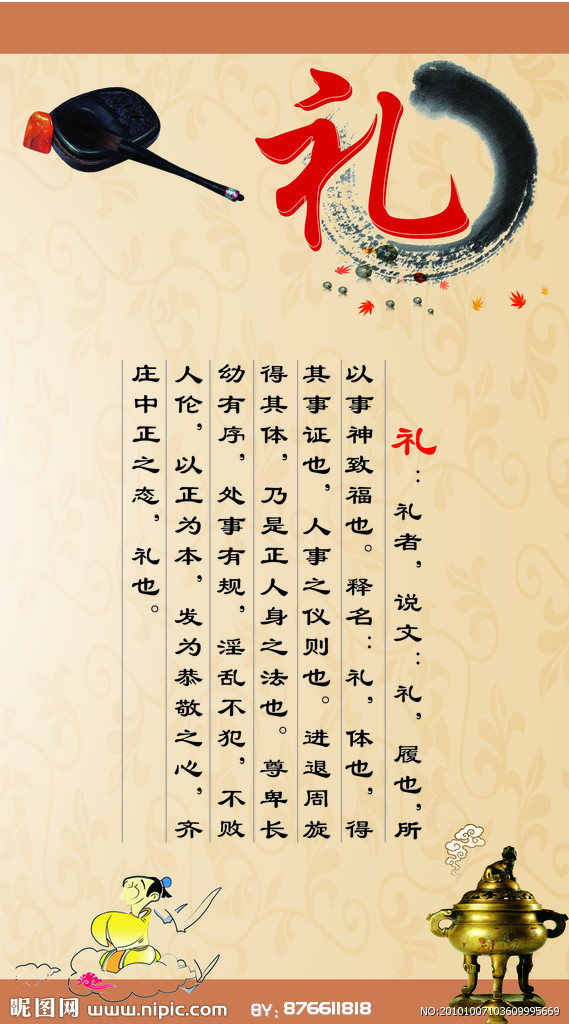 礼
礼：礼者，说文：礼，履也，所
以事神致福也。释名：礼，体也，得
其事证也，人事之仪则也。进退周旋
得其体，乃是正人身之法也。尊卑长
幼有序，处事有规，淫乱不犯，不败
人伦，以正为本，发为恭敬之心，齐
庄中正之态，礼也。
昵图网 www.nipic.com BY：876611818 NO:20101007103609995669